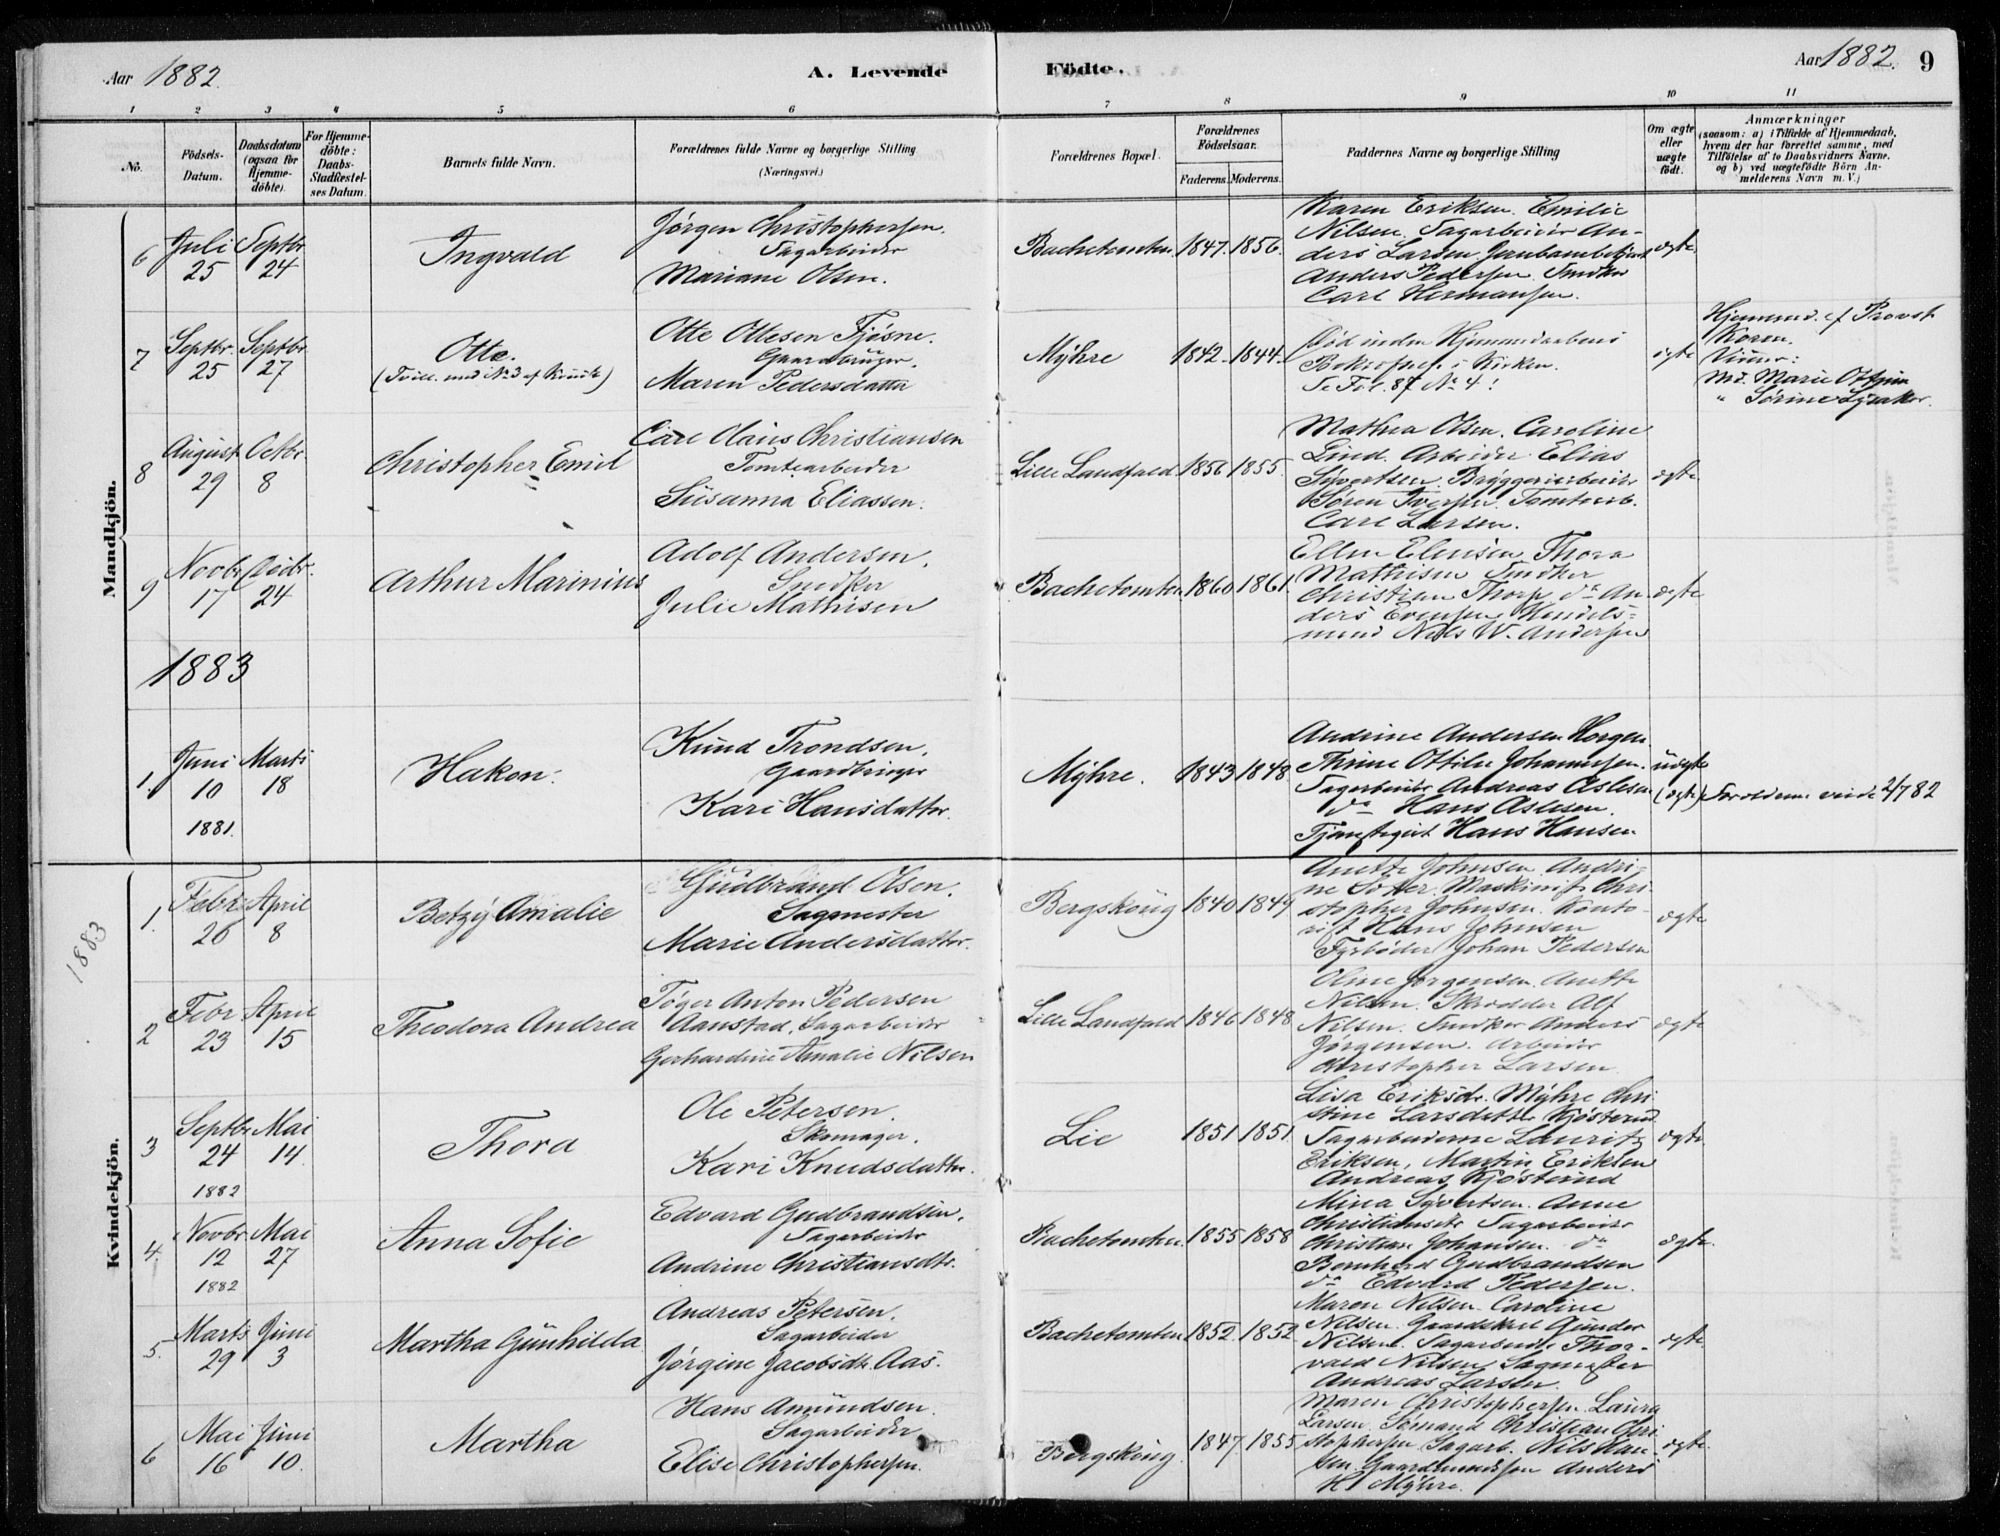 Aar 1882.
A. Levende
Födte.
Aar 1882.
9
1 2 3 4 5 6 7 8 9 10 11
No.
Födsels-
Datum.
Daabsdatum
(ogsaa for
Hjemme-
döbte).
For Hjemme-
döbte:
Daabs-
Stadfæstel-
ses Datum.
Barnets fulde Navn.
Forældrenes fulde Navne og borgerlige Stilling
(Næringsvei.)
Forældrenes Bopæl.
Forældrenes
Födselsaar.
Faderens. Moderens.
Faddernes Navne og borgerlige Stilling
Om ægte
eller
uægte
födt.
Anmærkninger
(saasom: a) i Tilfælde af Hjemmedaab,
hvem der har forrettet samme, med
Tilföielse af to Daabsvidners Navne,
og b) ved uægtefödte Börn An-
melderens Navn m. V.)
Mandkjön.
6
Juli
25
Septbr
24
Ingvald
Jørgen Christophersen.
Sagarbeider
Mariane Olsen.
Bachetomten
1847.
1856.
Karen Eriksen. Emilie
Nilsen. Sagarbeider An-
ders Larsen. Jernbanebetjent
Anders Pedersen. Snedker
Carl Hermansen.
ægte
7
Septbr.
25
Septbr
27
Otte.
(Tvill. med No 3 af Kvindk.)
Otte Ottesen Fjøsne.
Gaardbruger.
Maren Pedersdatter
Mÿhre
1842.
1844.
Død inden Hjemmedaabens
i Kirken.
Se Fol. 87 No 4!
ægte
Hjemmed. af Provst
Koren.
Marie
Sørine
8
August
29
Octbr
8
Christopher Emil
Carl Claus Christiansen
Tomtearbeider
Susanna Eliassen.
Lille Landfald
1856
1855
Mathea Olsen. Caroline
Lind. Arbeider Elias
Sivertsen. Brÿggeriarbeider
Søren Iversen. Tomtearb.
Carl Larsen.
ægte
9
Novbr
17
24
Arthur Marinius
Adolf Andersen.
Snedker
Julie Mathisen
Bachetomten
1860
1861.
Ellen Thora
Mathisen Snedker
Christian Thorp do An-
ders Evensen Handels-
mand Nils W. Andersen
ægte
1883
1.
Juni
10
1881.
Marts
18
Hakon.
Knud Trondsen.
Gaardbruger
Kari Hansdatter.
Mÿhre.
1843
1848
Andrine Andersen Horgen.
Thrine Ottilie Johannesen.
Sagarbeider Andreas Aslesen
do Hans Aslesen
Tjenestegut Hans Hansen
uægte
(ægte)
Forældrene viede 2/7 82
1883
Kvindekjön.
1.
Febr
26
April
8
Betzÿ Amalie
Gudbrand Olsen.
Sagmester
Marie Andersdatter.
Bergskoug
1840
1849
Anette Johnsen. Andri-
ne Maskinist Chri-
stopher Johnsen. Konto-
rist Hans Johnsen
Fyrbøder Johan Pedersen
ægte
2
Febr
23
April
15
Theodora Andrea
Tøger Anton Pedersen
Aanstad, Sagarbeider
Gerhardine Amalie Nilsen
Lille Landfald
1846
1848
Oline Jørgensen. Anette
Nilsen. Skrædder Alf
Nilsen. Snedker Anders
Jørgensen. Arbeider
Christopher Larsen.
ægte
3
Septbr
24
1882
Mai
14
Thora
Ole Petersen.
Skomager.
Kari Knudsdatter.
Lie
1851
1851.
Lisa Eriksdr. Mÿhre Chri-
stine Larsdatter Kjøsterud
Sagarbeiderne Lauritz
Eriksen, Martin Eriksen
Andreas Kjøsterud
ægte.
4.
Novbr
12
1882
Mai
27
Anna Sofie
Edvard Gudbrandsen.
Sagarbeider
Andrine Christiansdtr.
Bachetomten.
1855
1858
Mina Syvertsen. Anne
Christiansdtr Sagarbeider
Christian Johansen. do
Bernhard Gudbrandsen
do Edvard Pedersen.
ægte.
5.
Marts
29
Juni
3
Martha Gunhilda
Andreas Petersen.
Sagarbeider
Jørgine Jacobsdtr. Aas.
Bachetomten
1852.
1852
Maren Nilsen. Caroline
Nilsen. Gaardskarl Gunder
Nilsen. Sagarbeider Thor-
vald Nilsen Sagmester
Andreas Larsen.
ægte.
6
Mai
16
Juni
10.
Martha
Hans Amundsen.
Sagarbeider
Elise Christophersen.
Bergskoug
1847
1855
Maren Christophersen. Laura
Larsen. Sømand Christian Chri-
stophersen Sagarb. Nils Han-
sen. Gaardmandssøn Anders
H. Mÿhre.
ægte.